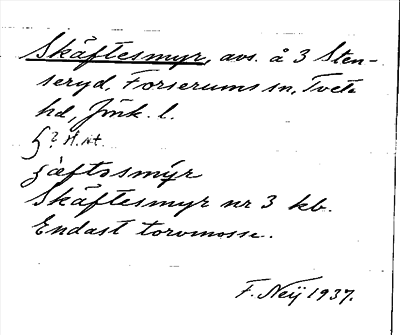 Skäftesmyr, avs. å 3 Sten-
seryd, Forserums sn, Tveta
hd, Jönk. l.
Skäftesmyr nr 3 kb.
Endast torvmosse.
F. Neij 1937.